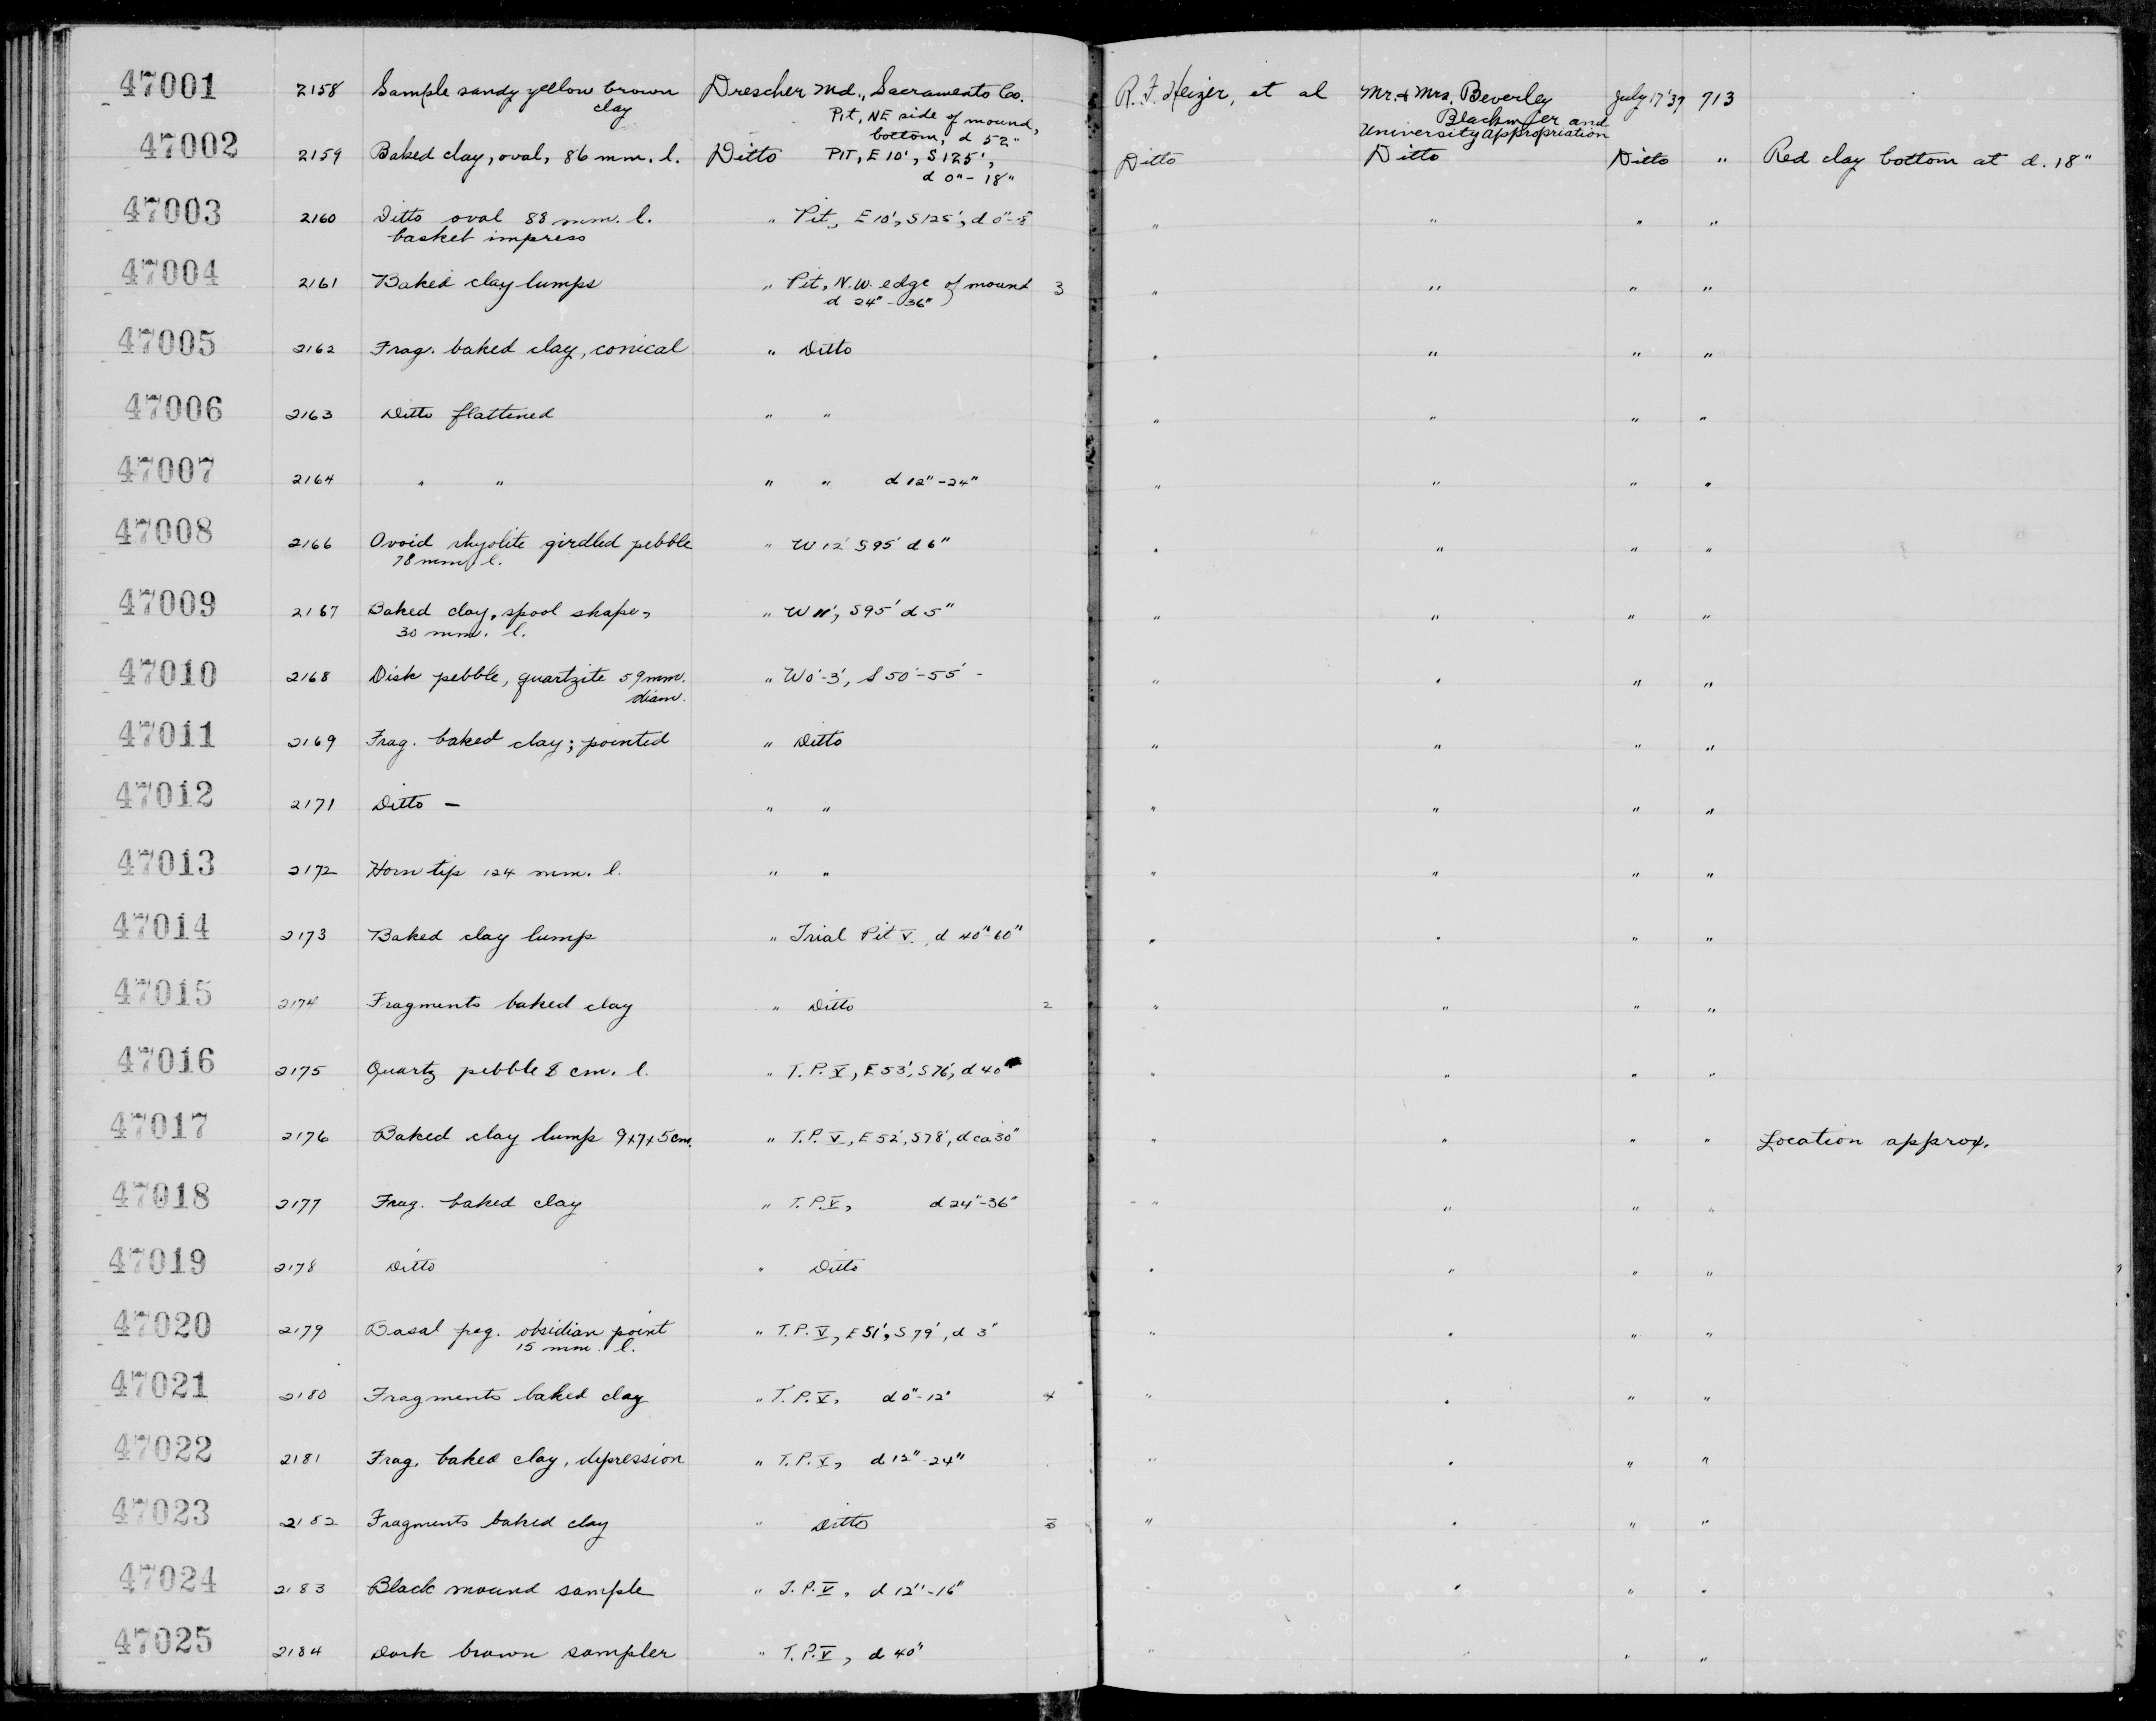 47001 2158 Sample sandy yellow brown Drescher Md., Sacramento Co. R. F. Heizer, et al Mr. & Mrs. Beverley July 17 '37 713
clay Pit, NE side of mound, Blackmer and
bottom, d 52" University Appropriation
47002 2159 Baked clay, oval, 86 mm. l. Ditto Pit, E 10', S 125', Ditto Ditto Ditto " Red clay bottom at d. 18"
d 0"-18"
47003 2160 Ditto oval 88 mm. l. " Pit, E 10', S 125', d 0"-18" " " " "
basket impress
47004 2161 Baked clay lumps " Pit, N.W. edge of mound 3 " " " "
d 24"-36"
47005 2162 Frag. baked clay, conical " Ditto " " " "
47006 2163 Ditto flattened " " " " " "
47007 2164 " " " " d 12"-24" " " " "
47008 2166 Ovoid rhyolite girdled pebble " W 12' S 95' d 6" " " " "
78 mm l.
47009 2167 Baked clay, spool shape, " W 11', S 95' d 5" " " " "
30 mm. l.
47010 2168 Disk pebble, quartzite 59 mm. " W 0'-3', S 50'-55' - " " " "
diam.
47011 2169 Frag. baked clay; pointed " Ditto " " " "
47012 2171 Ditto — " " " " " "
47013 2172 Horn tip 124 mm. l. " " " " " "
47014 2173 Baked clay lump " Trial Pit V, d 40"-60" " " " "
47015 2174 Fragments baked clay " Ditto 2 " " " "
47016 2175 Quartz pebble 8 cm. l. " T.P. V, E 53', S 76', d 40" " " " "
47017 2176 Baked clay lump 9x7x5 cm. " T.P. V, E 52', S 78', d ca 30" " " " " Location approx.
47018 2177 Frag. baked clay " T.P. V, d 24"-36" " " " "
47019 2178 Ditto " Ditto " " " "
47020 2179 Basal frag. obsidian point " T.P. V, E 51', S 79', d 3" " " " "
15 mm. l.
47021 2180 Fragments baked clay " T.P. V, d 0"-12" 4 " " " "
47022 2181 Frag. baked clay, depression " T.P. V, d 12"-24" " " " "
47023 2182 Fragments baked clay " Ditto " " " "
47024 2183 Black mound sample " T.P. V, d 12"-16" " " " "
47025 2184 Dark brown sampler " T.P. V, d 40" " " "